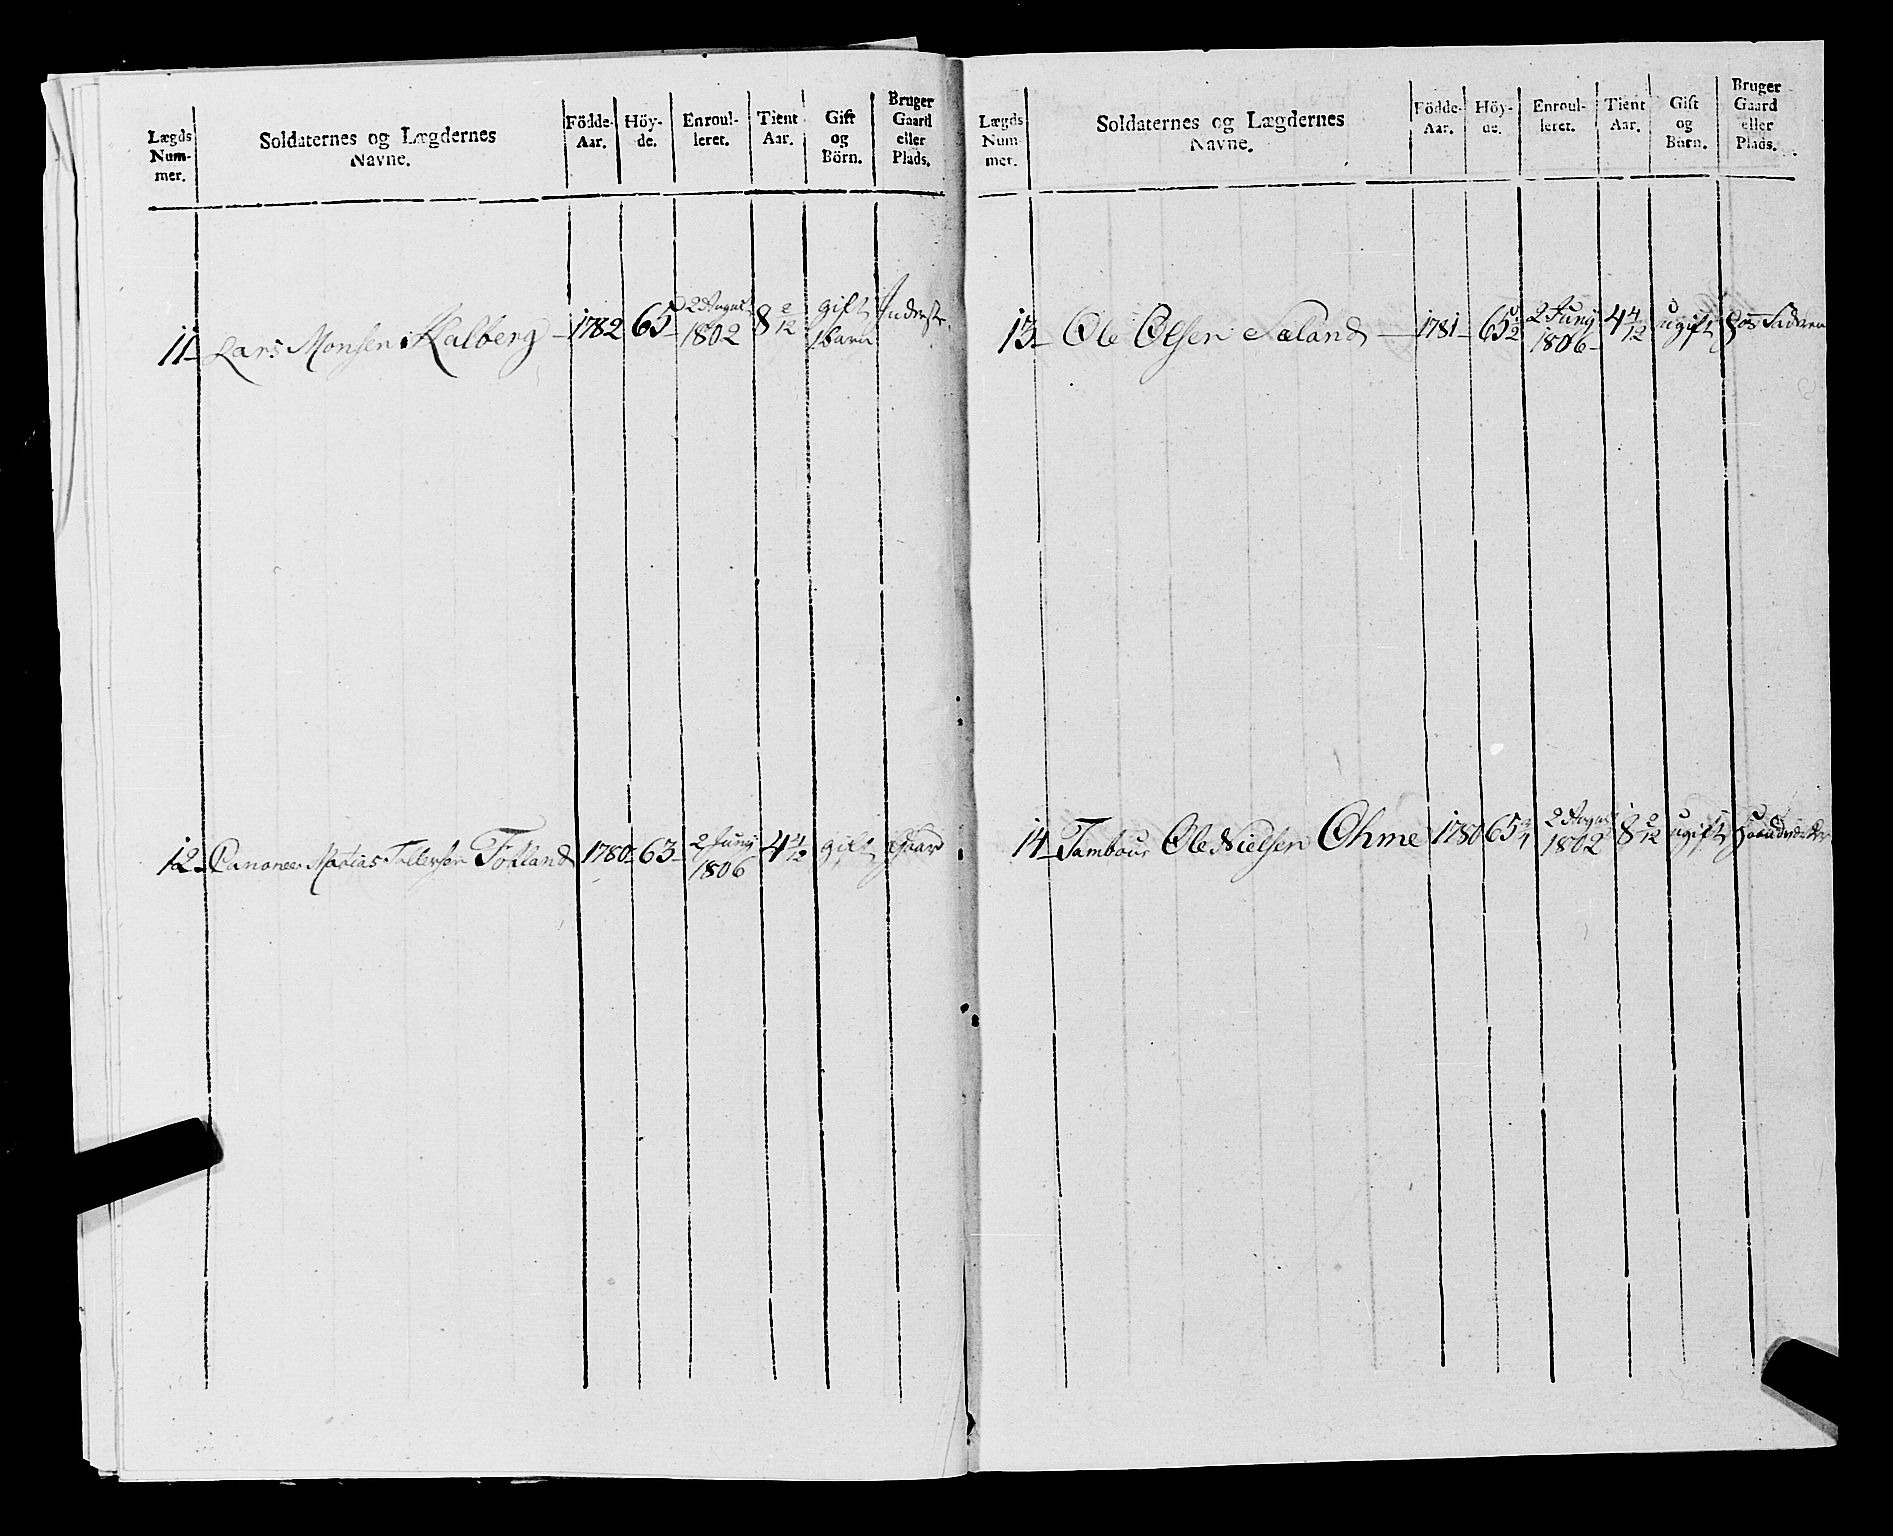 Lægds Num- mer.
Soldaternes og Lægdernes Navne.
Födde- Aar.
Höy- de.
Enroul- leret.
Tient Aar.
Gift og Börn.
Bruger Gaard eller Plads.
11 Lars Monsen Kalberg 1782 65 2 August 1802 8 2/12 gift 1 barn Inderste
12 Canoneer Matias Tollefsen Fotland 1780 63 2 Juny 1806 4 4/12 gift Gaard
Lægds Num- mer.
Soldaternes og Lægdernes Navne.
Födde- Aar.
Höy- de.
Enroul- leret.
Tient Aar.
Gift og Börn.
Bruger Gaard eller Plads.
13 Ole Olsen Sæland 1781 65 1/2 2 Juny 1806 4 4/12 ugift hos Faderen
14 Tambour Ole Nielsen Ohme 1780 65 2 August 1802 8 2/12 ugift